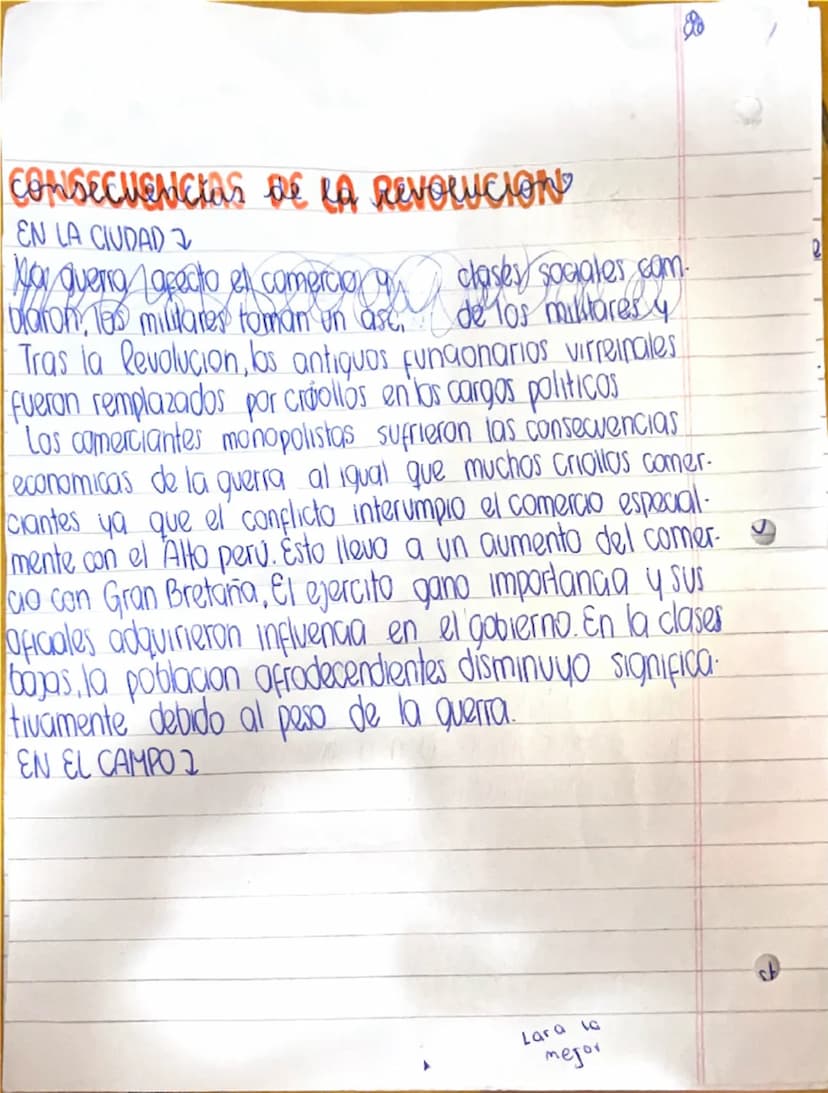 CONSECUENCIAS DE LA REVOLUCION
EN LA CIUDAD
La guerra afecto el comercio y clases sociales cam-
biaron, los militares toman un asc. de los militares y
Tras la Revolucion, los antiguos funcionarios virreinales
fueron remplazados por criollos en los cargos politicos
Los comerciantes monopolistas sufrieron las consecuencias
economicas de la guerra al igual que muchos criollos comer-
ciantes ya que el conflicto interumpio el comercio especial-
mente con el Alto perú. Esto llevo a un aumento del comer-
cio con Gran Bretaña, El ejercito gano importancia y sus
oficiales adquirieron influencia en el gobierno. En la clases
bajas, la poblacion afrodecendientes disminuyo significa-
tivamente debido al peso de la guerra.
EN EL CAMPO
Lara la
mejor